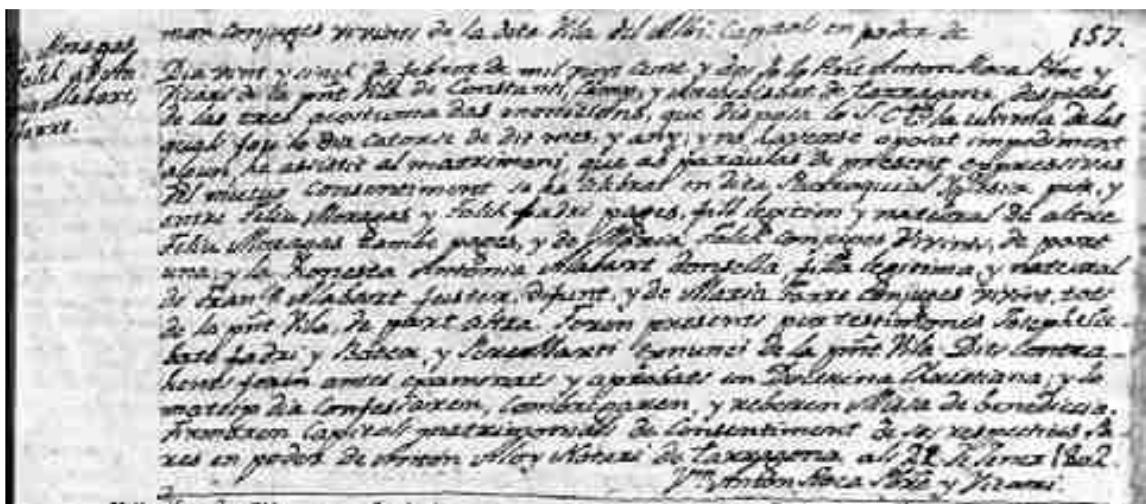 man conjuges vivints de la dita Vila del Albi. Capitol en poder de
157.
Moragas
Folch ab Anto-
nia Alabart,
Farre.
Dia vint y sinch de febrer de mil vuyt cents y dos jo lo Rnt Anton Roca Pbre y
Vicari de la pnt Vila de Constantí, Camp, y Archebisbat de Tarragona despres
de las tres acostumadas monicions, que disposa lo S. C. la ultima de las
quals fou lo dia catorse de dit mes, y any, y no havense oposat impediment
algun, he assistit al matrimoni, que ab paraulas de present expressivas
del mutuo consentiment se ha celebrat en dita Parroquial Iglesia per, y
entre Feliu Moragas y Folch fadri pages, fill legitim y natural de altre
Feliu Moragas tambe pages, y de Maria Folch conjuges vivints, de part
una; y la Honesta Antonia Alabart donsella, filla legitima y natural
de Alabart fuster, difunt, y de Maria Farre conjuges vivint, tots
de la pnt Vila, de part altra. Foren presents per testimonis Joseph
fadri y, y Marti de la pnt Vila. Dits contra-
hents foren antes examinats y aprobats en Doctrina Christiana, y lo
mateix dia confessaren, combregaren, y reberen Missa de benediccio.
Firmaren Capitols matrimonials de consentiment de sos respectius Pa-
res en poder de Anton Notari de Tarragona als 28 de Janer 1802.
Anton Roca Pbre y Vicari.